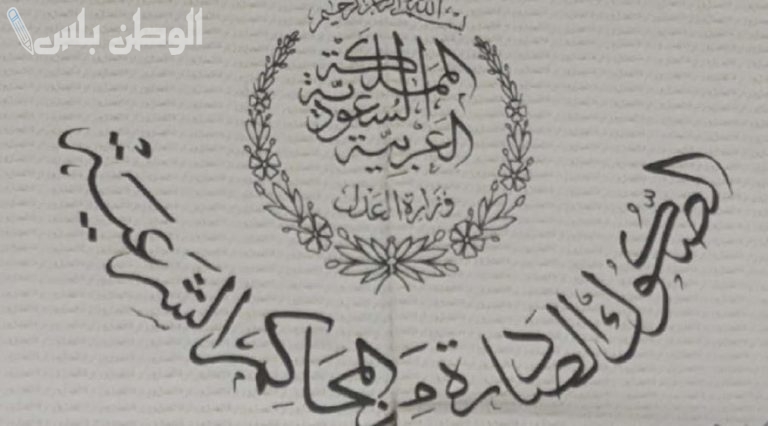 الوطن بلس
بسم الله الرحمن الرحيم
المملكة
العربية
السعودية
وزارة العدل
الصكوك الصادرة من المحاكم الشرعية